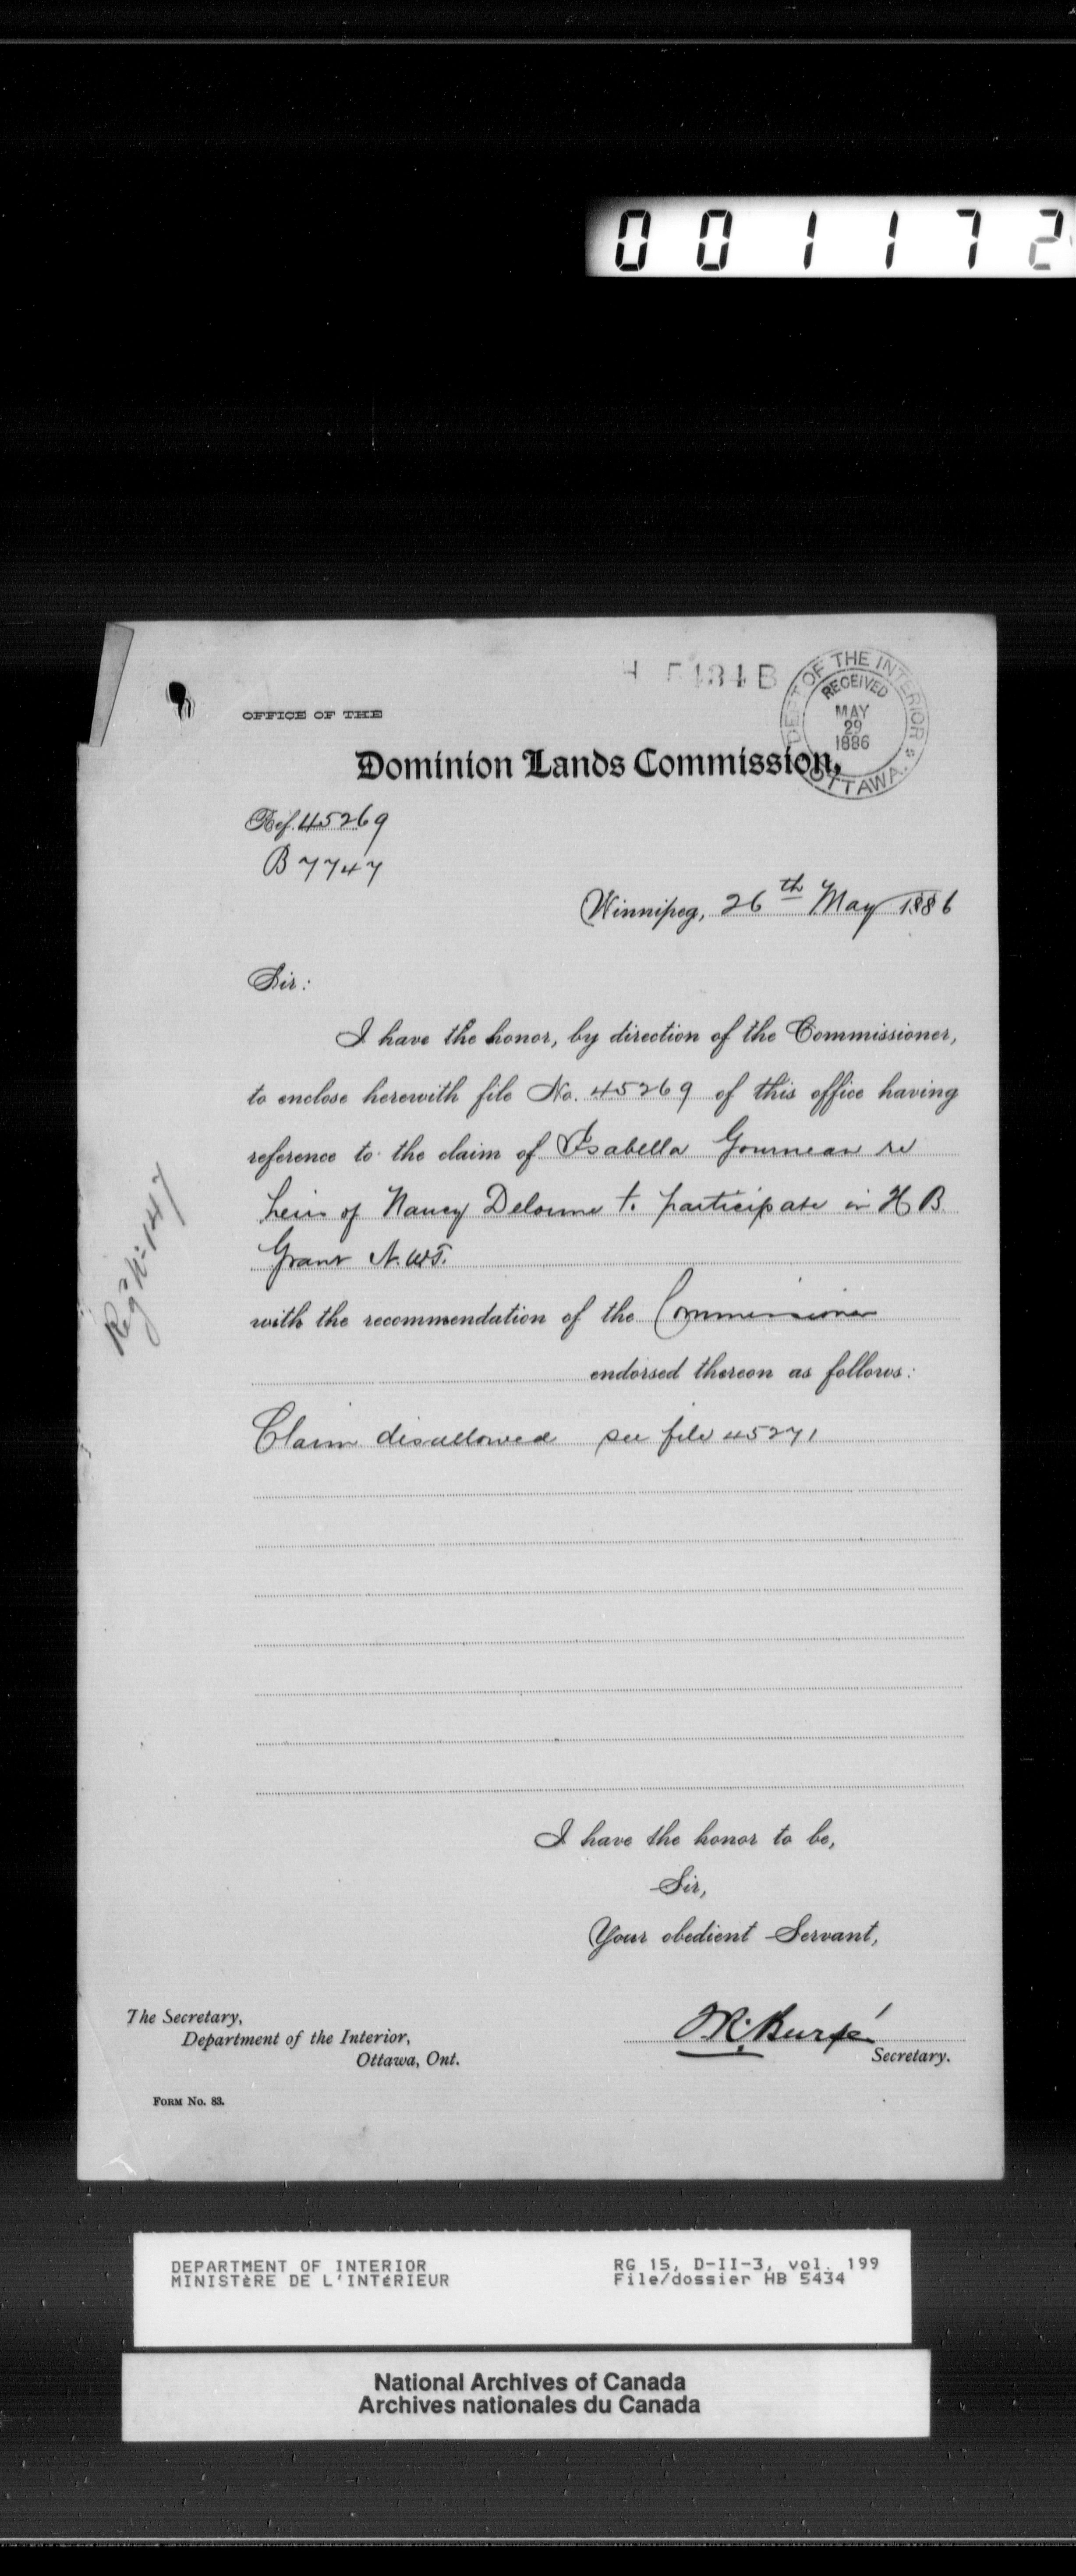 001172
H 5434 B
DEPT OF THE INTERIOR
RECEIVED
MAY
29
1886
OTTAWA.
OFFICE OF THE
Dominion Lands Commission,
Ref. 45269
B 7747
Winnipeg, 26th May 1886
Sir:
I have the honor, by direction of the Commissioner,
to enclose herewith file No. 45269 of this office having
reference to the claim of Isabella Gourneau re
heirs of Nancy Delorme to participate in H B
Grant N.W.T.
with the recommendation of the Commissioner
endorsed thereon as follows:
Claim disallowed see file 45271
Reg No 147
I have the honor to be,
Sir,
Your obedient Servant,
The Secretary,
Department of the Interior,
Ottawa, Ont.
Burpé
Secretary.
FORM No. 83.
DEPARTMENT OF INTERIOR
MINISTÈRE DE L'INTÉRIEUR
RG 15, D-II-3, vol. 199
File/dossier HB 5434
National Archives of Canada
Archives nationales du Canada